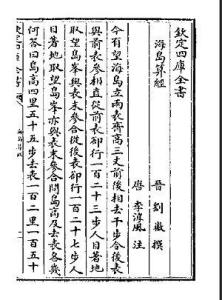 欽定四庫全書
海島算經
晉 劉徽 撰
唐 李淳風 注
今有望海島立兩表齊高三丈前後相去千步令後表
與前表參相直從前表却行一百二十三步人目著地
取望島峯與表末參合從後表却行一百二十七步人
目著地取望島峯亦與表末參合問島高及去表各幾
何答曰島高四里五十五步去表一百二里一百五十